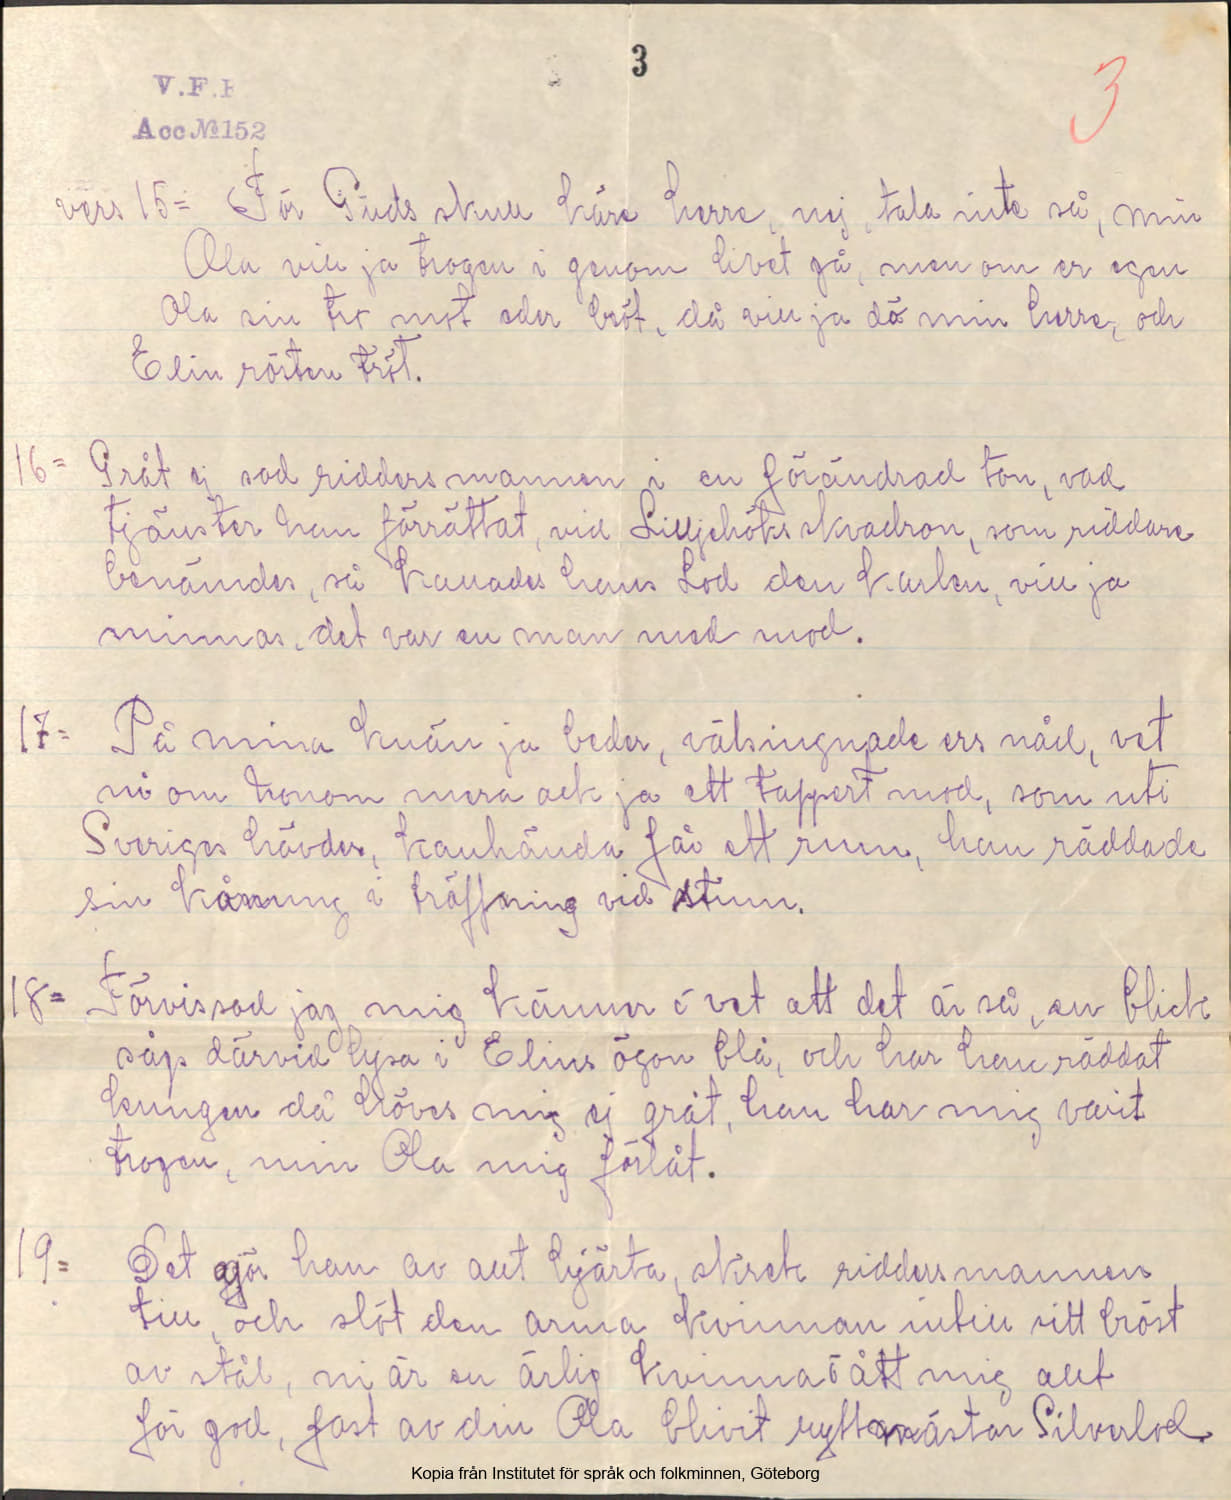 3
3
V.F.F
Acc № 152
vers 15= För Guds skull käre herre, nej, tala inte så, min
Ola vill ja trogen i genom livet gå, men om er egen
Ola sin tro mot eder bröt, då vill ja dö min herre, och
Elin rösten tröt.
16= Gråt ej sad riddersmannen i en förändrad ton, vad
tjänster han förrättat, vid Lilljehöks skvadron, som riddare
benämdes, så kallades hans Lod den karlen, vill ja
minnas, det var en man med mod.
17= På mina knän ja beder, välsingnade ers nåd, vet
ni om honom mera ack ja ett tappert mod, som uti
Sveriges hävder, kanhända får ett rum, han räddade
sin konung i träffning vid stum.
18= Förvissad jag mig känner ó vet att det är så, en blick
sågs därvid lysa i Elins ögon blå, och har han räddat
kungen då höves mig ej gråt, han har mig varit
trogen, min Ola mig förlåt.
19= Det gör han av allt hjärta, skrek riddersmannen
till, och slöt den arma kvinnan intill sitt bröst
av stål, ni är en ärlig kvinna ó ått mig allt
för god, fast av din Ola blivit ryttmästar Silverlod.
Kopia från Institutet för språk och folkminnen, Göteborg